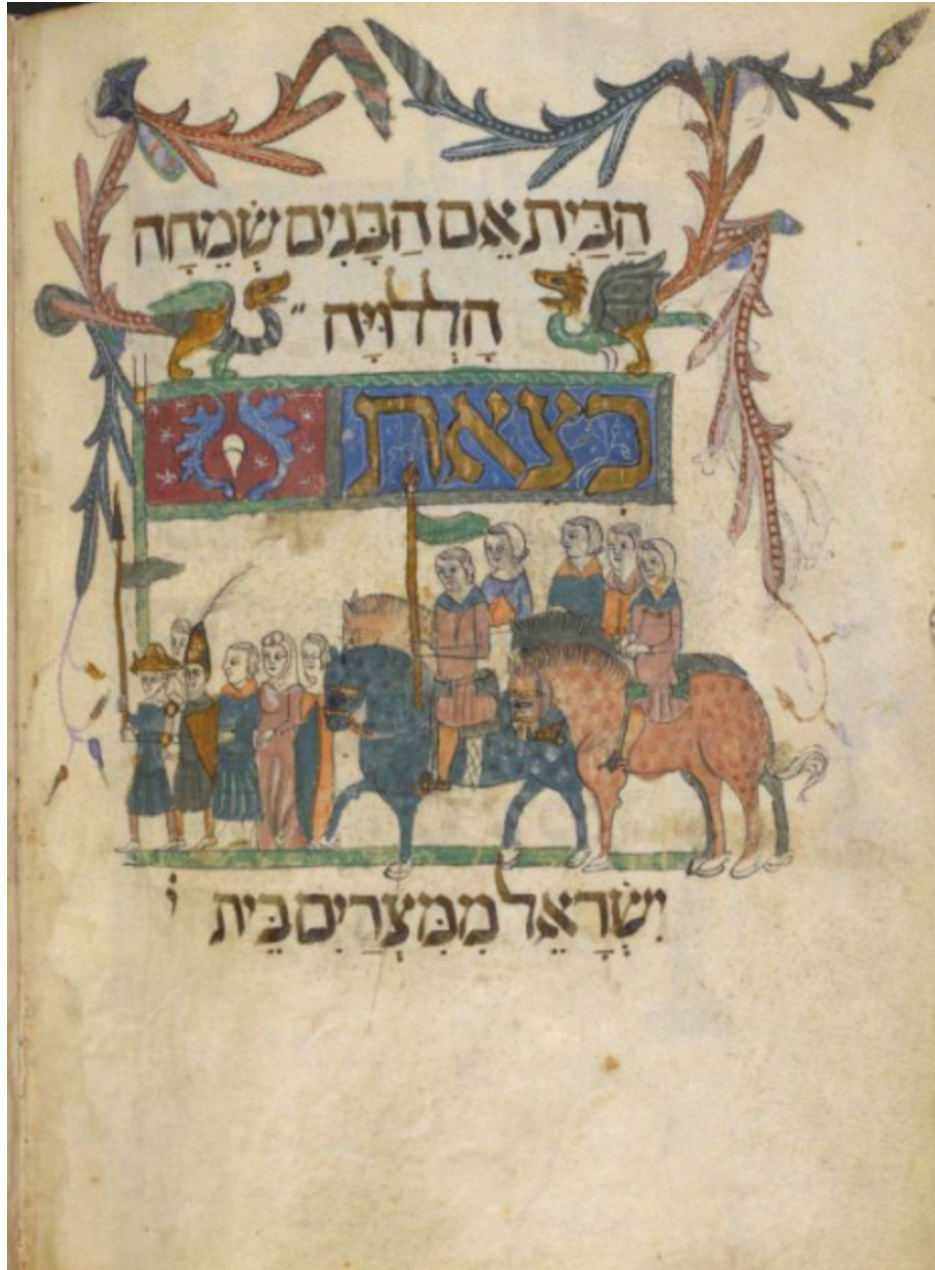 הַבַּיִת אֵם הַבָּנִים שְׂמֵחָה
הָלְלוּיָּה ״
בְּצֵאת
יִשְׂרָאֵל מִמִּצְרַיִם בֵּית י